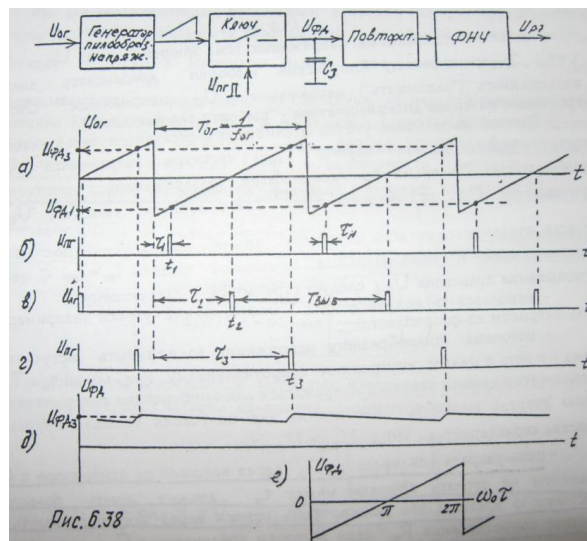 Uог
Генератор
пилообраз.
напряж.
Ключ
Uпг
Uфд
Cз
Повторит.
ФНЧ
Uрэ
Uог
Tог = 1/fог
Uфд3
а)
t
Uфд1
б) Uпг
τ1
t1
τи
t
в) Uпг
τ2
t2
Tвыб
t
г) Uпг
τ3
t3
t
Uфд
Uфд3
д)
t
г) Uфд
0
π
2π
ω0τ
Рис. 6.38